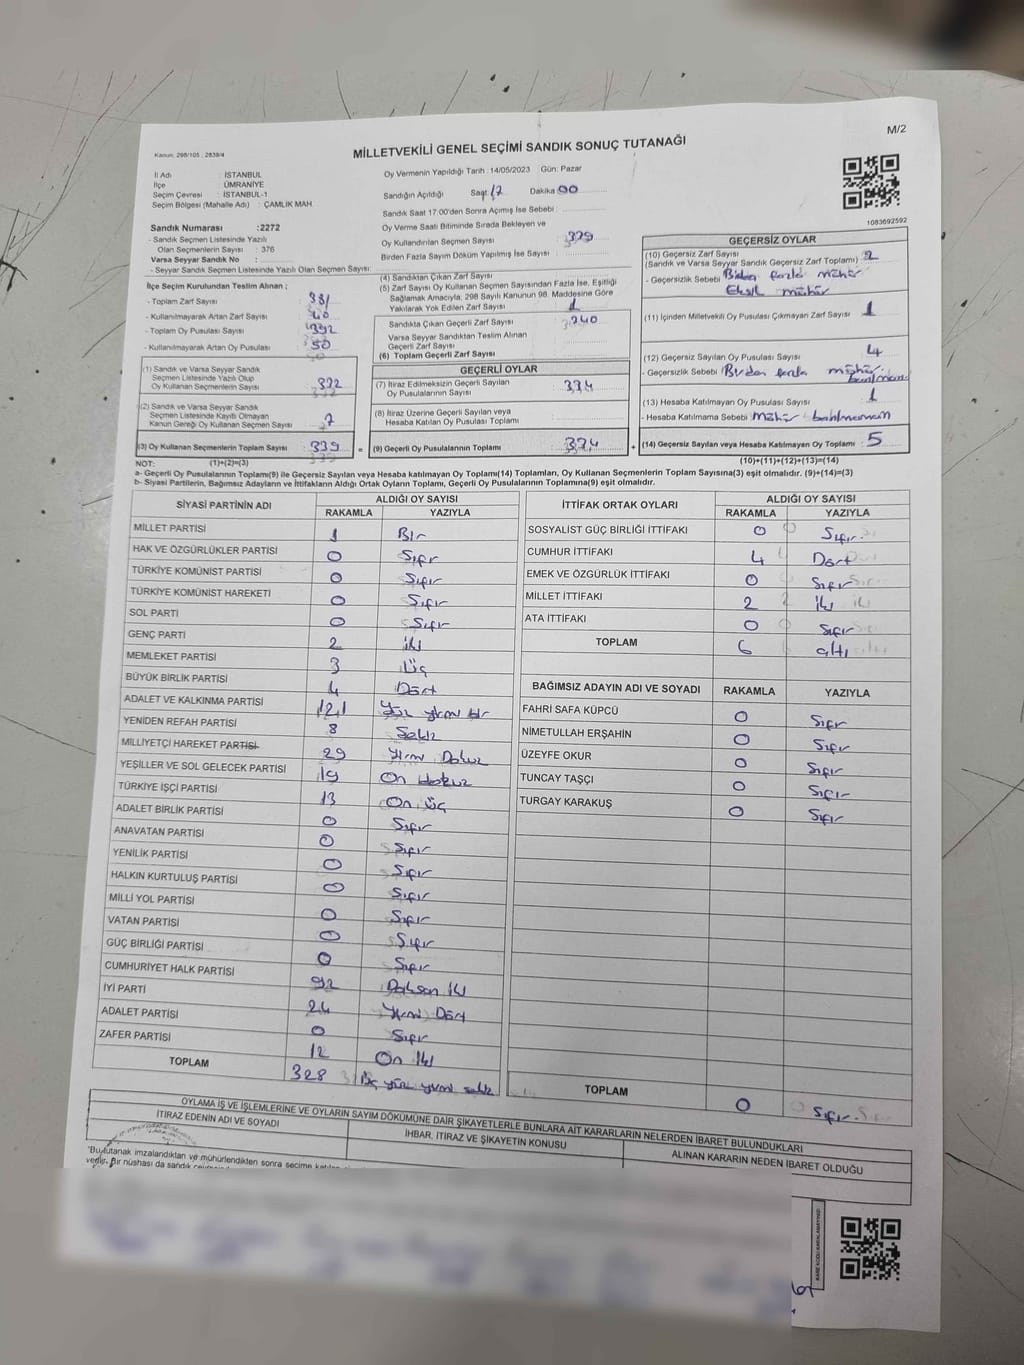 M/2
Kanun: 298/105 , 2839/4
MİLLETVEKİLİ GENEL SEÇİMİ SANDIK SONUÇ TUTANAĞI
İl Adı : İSTANBUL
İlçe : ÜMRANİYE
Seçim Çevresi : İSTANBUL-1
Seçim Bölgesi (Mahalle Adı) : ÇAMLIK MAH
Oy Vermenin Yapıldığı Tarih : 14/05/2023 Gün: Pazar
Sandığın Açıldığı Saat 17 Dakika 00
Sandık Saat 17.00'den Sonra Açımış İse Sebebi :
Oy Verme Saati Bitiminde Sırada Bekleyen ve
Oy Kullandırılan Seçmen Sayısı
Birden Fazla Sayım Döküm Yapılmış İse Sayısı :
1083692592
Sandık Numarası :2272
- Sandık Seçmen Listesinde Yazılı
Olan Seçmenlerin Sayısı : 376
Varsa Seyyar Sandık No :
- Seyyar Sandık Seçmen Listesinde Yazılı Olan Seçmen Sayısı:
İlçe Seçim Kurulundan Teslim Alınan ;
- Toplam Zarf Sayısı
- Kullanılmayarak Artan Zarf Sayısı : 40
- Toplam Oy Pusulası Sayısı
- Kullanılmayarak Artan Oy Pusulası : 50
(1) Sandık ve Varsa Seyyar Sandık
Seçmen Listesinde Yazılı Olup
Oy Kullanan Seçmenlerin Sayısı 332
(2) Sandık ve Varsa Seyyar Sandık
Seçmen Listesinde Kayıtlı Olmayan
Kanun Gereği Oy Kullanan Seçmen Sayısı 7
(3) Oy Kullanan Seçmenlerin Toplam Sayısı 339
(1)+(2)=(3)
(4) Sandıktan Çıkan Zarf Sayısı
(5) Zarf Sayısı Oy Kullanan Seçmen Sayısından Fazla İse, Eşitliği
Sağlamak Amacıyla, 298 Sayılı Kanunun 98. Maddesine Göre
Yakılarak Yok Edilen Zarf Sayısı 1
Sandıkta Çıkan Geçerli Zarf Sayısı 340
Varsa Seyyar Sandıktan Teslim Alınan
Geçerli Zarf Sayısı
(6) Toplam Geçerli Zarf Sayısı
GEÇERLİ OYLAR
(7) İtiraz Edilmeksizin Geçerli Sayılan
Oy Pusulalarının Sayısı 334
(8) İtiraz Üzerine Geçerli Sayılan veya
Hesaba Katılan Oy Pusulası Toplamı
= (9) Geçerli Oy Pusulalarının Toplamı 334
GEÇERSİZ OYLAR
(10) Geçersiz Zarf Sayısı
(Sandık ve Varsa Seyyar Sandık Geçersiz Zarf Toplamı) 2
- Geçersizlik Sebebi Birden fazla mühür
Eksik mühür
(11) İçinden Milletvekili Oy Pusulası Çıkmayan Zarf Sayısı 1
(12) Geçersiz Sayılan Oy Pusulası Sayısı 4
- Geçersizlik Sebebi Birden fazla mühür
(13) Hesaba Katılmayan Oy Pusulası Sayısı 1
- Hesaba Katılmama Sebebi mühür
+ (14) Geçersiz Sayılan veya Hesaba Katılmayan Oy Toplamı 5
(10)+(11)+(12)+(13)=(14)
NOT:
a- Geçerli Oy Pusulalarının Toplamı(9) ile Geçersiz Sayılan veya Hesaba katılmayan Oy Toplamı(14) Toplamları, Oy Kullanan Seçmenlerin Toplam Sayısına(3) eşit olmalıdır. (9)+(14)=(3)
b- Siyasi Partilerin, Bağımsız Adayların ve İttifakların Aldığı Ortak Oyların Toplamı, Geçerli Oy Pusulalarının Toplamına(9) eşit olmalıdır.
SİYASİ PARTİNİN ADI ALDIĞI OY SAYISI
RAKAMLA YAZIYLA
MİLLET PARTİSİ 1 Bir
HAK VE ÖZGÜRLÜKLER PARTİSİ 0 Sıfır
TÜRKİYE KOMÜNİST PARTİSİ 0 Sıfır
TÜRKİYE KOMÜNİST HAREKETİ 0 Sıfır
SOL PARTİ 0 Sıfır
GENÇ PARTİ 2 iki
MEMLEKET PARTİSİ 3 Üç
BÜYÜK BİRLİK PARTİSİ 4 Dört
ADALET VE KALKINMA PARTİSİ 121 Yüz yirmi bir
YENİDEN REFAH PARTİSİ 8 Sekiz
MİLLİYETÇİ HAREKET PARTİSİ 29 Yirmi Dokuz
YEŞİLLER VE SOL GELECEK PARTİSİ 19 On dokuz
TÜRKİYE İŞÇİ PARTİSİ 13 On üç
ADALET BİRLİK PARTİSİ 0 Sıfır
ANAVATAN PARTİSİ 0 Sıfır
YENİLİK PARTİSİ 0 Sıfır
HALKIN KURTULUŞ PARTİSİ 0 Sıfır
MİLLİ YOL PARTİSİ 0 Sıfır
VATAN PARTİSİ 0 Sıfır
GÜÇ BİRLİĞİ PARTİSİ 0 Sıfır
CUMHURİYET HALK PARTİSİ 92 Doksan iki
İYİ PARTİ 24 Yirmi Dört
ADALET PARTİSİ 0 Sıfır
ZAFER PARTİSİ 12 On iki
TOPLAM 328 Üç yüz yirmi sekiz
İTTİFAK ORTAK OYLARI ALDIĞI OY SAYISI
RAKAMLA YAZIYLA
SOSYALİST GÜÇ BİRLİĞİ İTTİFAKI 0 Sıfır
CUMHUR İTTİFAKI 4 Dört
EMEK VE ÖZGÜRLÜK İTTİFAKI 0 Sıfır
MİLLET İTTİFAKI 2 iki
ATA İTTİFAKI 0 Sıfır
TOPLAM 6 altı
BAĞIMSIZ ADAYIN ADI VE SOYADI RAKAMLA YAZIYLA
FAHRİ SAFA KÜPCÜ 0 Sıfır
NİMETULLAH ERŞAHİN 0 Sıfır
ÜZEYFE OKUR 0 Sıfır
TUNCAY TAŞÇI 0 Sıfır
TURGAY KARAKUŞ 0 Sıfır
TOPLAM 0 Sıfır
OYLAMA İŞ VE İŞLEMLERİNE VE OYLARIN SAYIM DÖKÜMÜNE DAİR ŞİKAYETLERLE BUNLARA AİT KARARLARIN NELERDEN İBARET BULUNDUKLARI
İTİRAZ EDENİN ADI VE SOYADI İHBAR, İTİRAZ VE ŞİKAYETİN KONUSU ALINAN KARARIN NEDEN İBARET OLDUĞU
"Bu tutanak imzalandıktan ve mühürlendikten sonra seçime